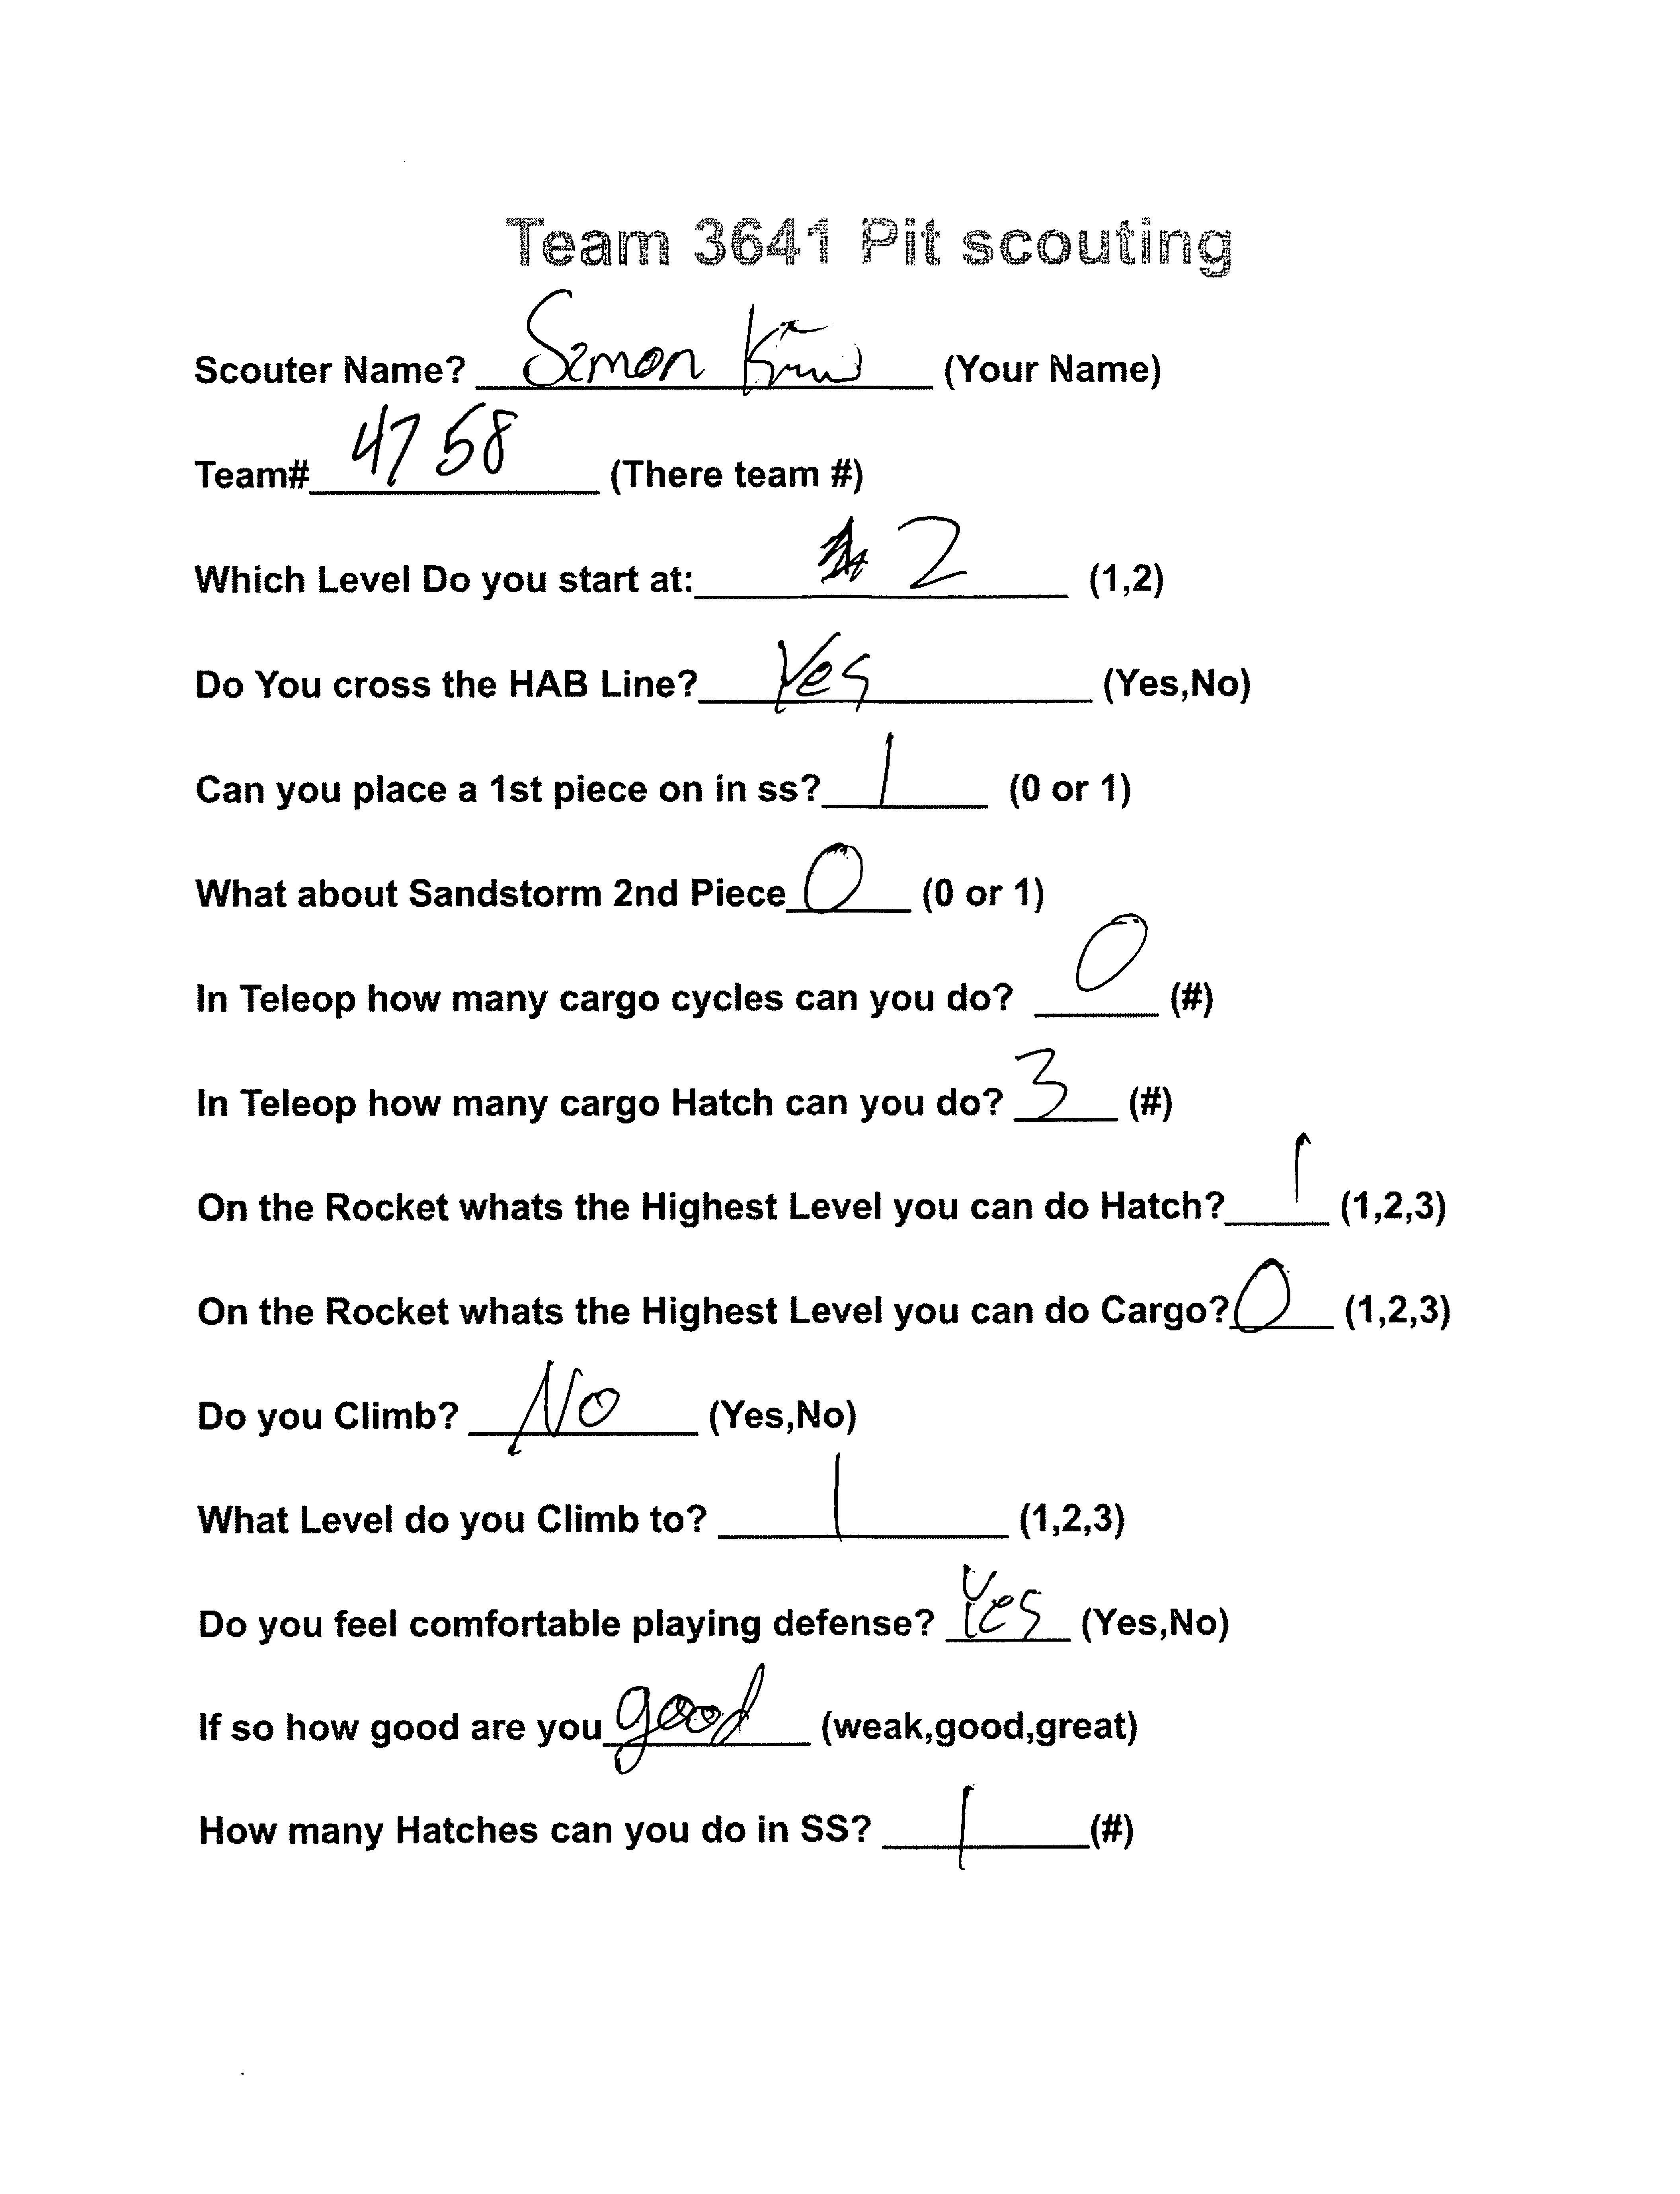 Team 3641 Pit scouting
Scouter Name? Simon (Your Name)
Team# 4758 (There team #)
Which Level Do you start at: 2 (1,2)
Do You cross the HAB Line? Yes (Yes,No)
Can you place a 1st piece on in ss? 1 (0 or 1)
What about Sandstorm 2nd Piece 0 (0 or 1)
In Teleop how many cargo cycles can you do? 0 (#)
In Teleop how many cargo Hatch can you do? 3 (#)
On the Rocket whats the Highest Level you can do Hatch? 1 (1,2,3)
On the Rocket whats the Highest Level you can do Cargo? 0 (1,2,3)
Do you Climb? No (Yes,No)
What Level do you Climb to? 1 (1,2,3)
Do you feel comfortable playing defense? Yes (Yes,No)
If so how good are you good (weak,good,great)
How many Hatches can you do in SS? 1 (#)